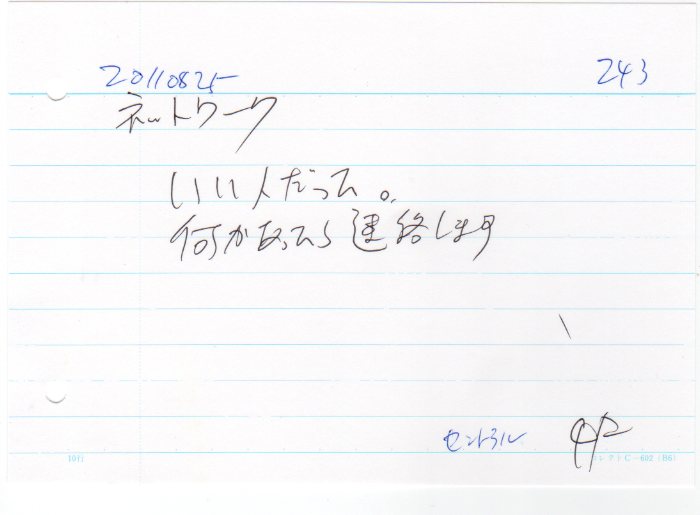 20110825
243
ネットワーク
いい人だった。
何かあったら連絡します
セントラル
10行
コレクト C-602 (B6)